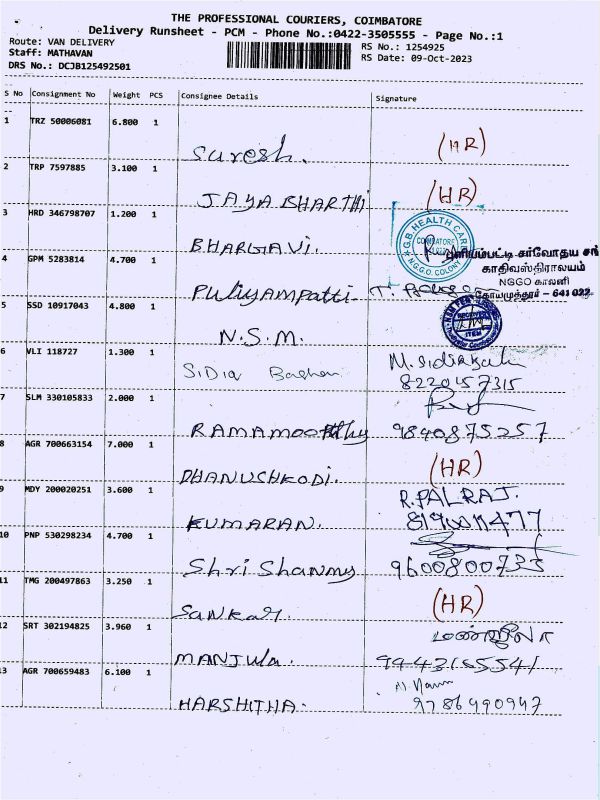 THE PROFESSIONAL COURIERS, COIMBATORE
Delivery Runsheet - PCM - Phone No.:0422-3505555 - Page No.:1
Route: VAN DELIVERY
Staff: MATHAVAN
DRS No.: DCJB125492501
RS No.: 1254925
RS Date: 09-Oct-2023
S No Consignment No Weight PCS Consignee Details Signature
1 TRZ 50006081 6.800 1 Suresh. (HR)
2 TRP 7597885 3.100 1 JAYA BHARTHI (HR)
3 HRD 346798707 1.200 1 BHARGAVI.
G.B HEALTH CARE
COIMBATORE
N.G.G.O. COLONY
4 GPM 5283814 4.700 1 Puliyampatti
புளியம்பட்டி சர்வோதய சங்
காதிவஸ்திராலயம்
NGGO காலனி
கோயமுத்தூர் - 641 022
5 SSD 10917043 4.800 1 N.S.M.
6 VLI 118727 1.300 1 SiDiq Bashan
8220157315
7 SLM 330105833 2.000 1 RAMAMOORTHY 9840875257
8 AGR 700663154 7.000 1 DHANUSHKODI. (HR)
9 MDY 200020251 3.600 1 KUMARAN. R.PALRAJ.
10 PNP 530298234 4.700 1 Shri Shanmu 9600800735
11 TMG 200497863 3.250 1 Sankar. (HR)
12 SRT 302194825 3.960 1 MANJULA.
9943165541
13 AGR 700659483 6.100 1 HARSHITHA.
9786490947